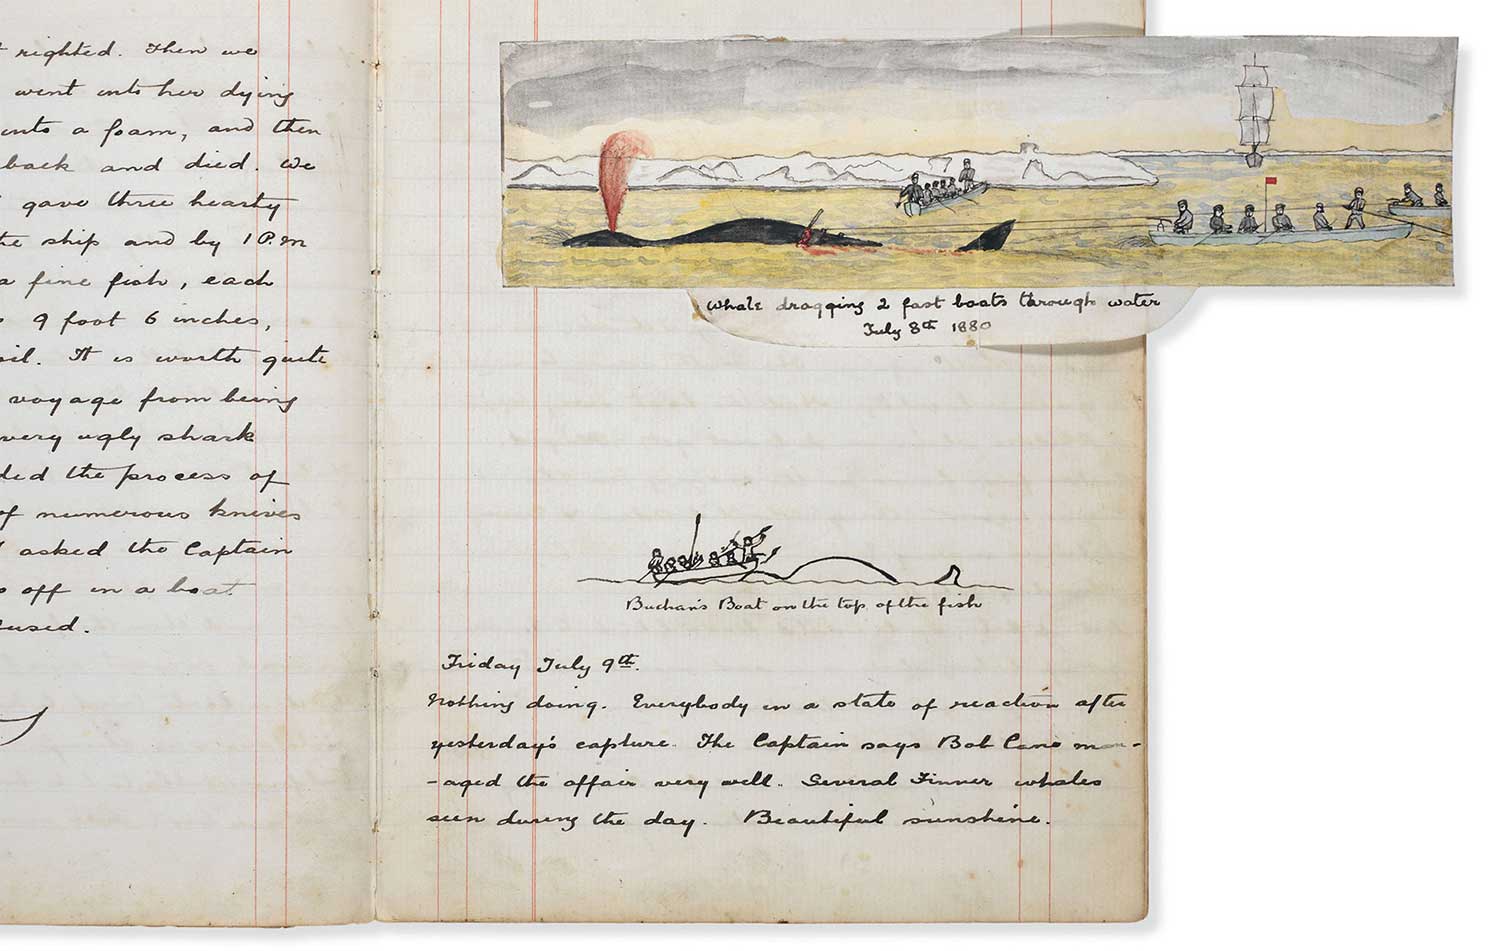 righted. Then we
went into her dying
into a foam, and then
back and died. We
gave three hearty
the ship and by 1 P.m
a fine fish, each
9 foot 6 inches,
oil. It is worth quite
voyage from being
very ugly shark
ded the process of
of numerous knives
I asked the Captain
off in a boat
fused.
Whale dragging 2 fast boats through water
July 8th 1880
Buchan's Boat on the top of the fish
Friday July 9th.
Nothing doing. Everybody in a state of reaction after
yesterday's capture. The Captain says Bob Cane man-
-aged the affair very well. Several Finner whales
seen during the day. Beautiful sunshine.